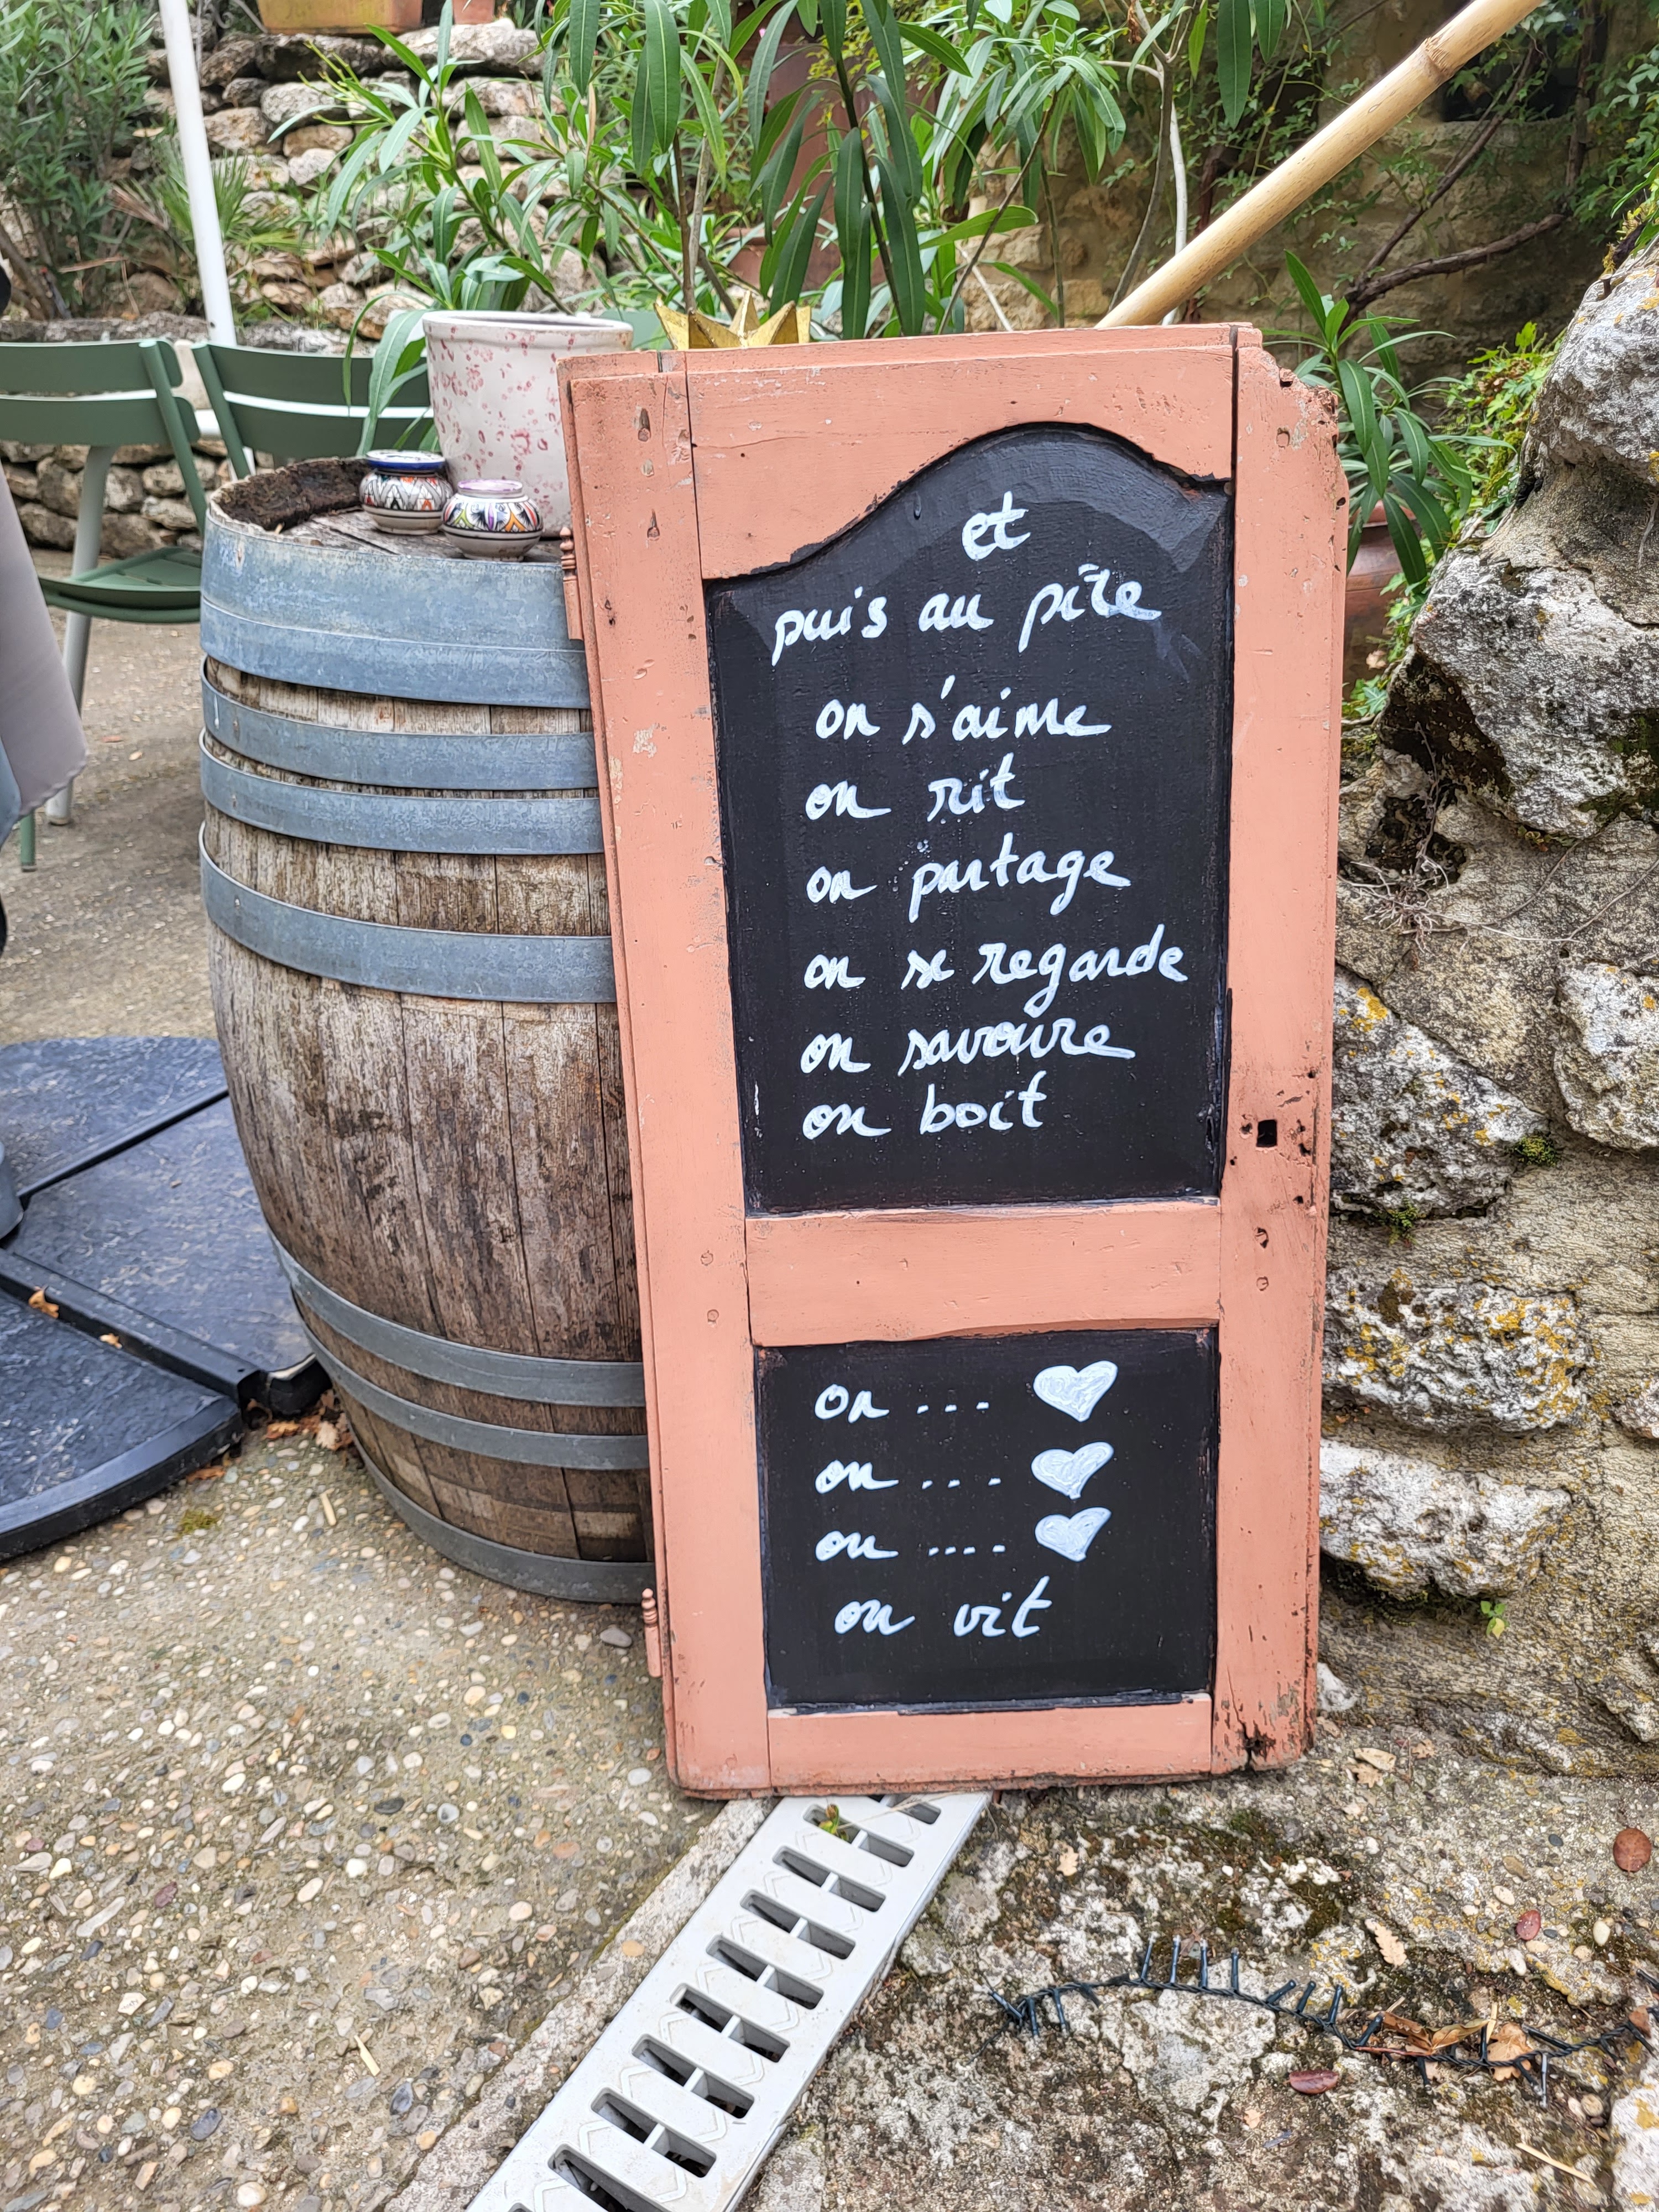 et
puis au pire
on s'aime
on rit
on partage
on se regarde
on savoure
on boit
on ... ♥
on ... ♥
on .... ♥
on vit